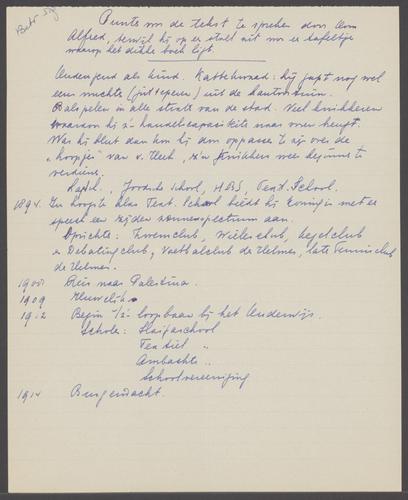 Betr 5g
Punten om de tekst te spreken door Oom
Alfred, terwijl hij op een stoel zit voor een tafeltje
waarop het dikke boek ligt.
Ondeugend als kind. Kattekwaad: hij gapt nog wel
een mutte uit de buurtuin.
Balspelen in alle straten van de stad. Veel knikkeren
waaraan hij z'n handelscapaciteit naar voren heeft.
Was hij blut dan kon hij door oppassen te zijn over de
"koopjes" van v. Vleck, z'n knikkers weer beginnen te
verdienen.
Joodsche school, HBS, Text. School.
1894. In hoogste klas Text. School biedt hij Koningin met een
speech een zijden zonnespectrum aan.
Oprichter: Zwemclub, Wielerclub, kegelclub
en Debatingclub, Voetbalclub de Helmers, later Tennisclub
de Helmers.
1900 Reis naar Palestina.
1909 Huwelijk.
1912 Begin v/z'n loopbaan bij het Onderwijs.
Scholen: Huisschool
Textiel "
Ambachts "
Schoolvereeniging
1914 Burgerwacht.